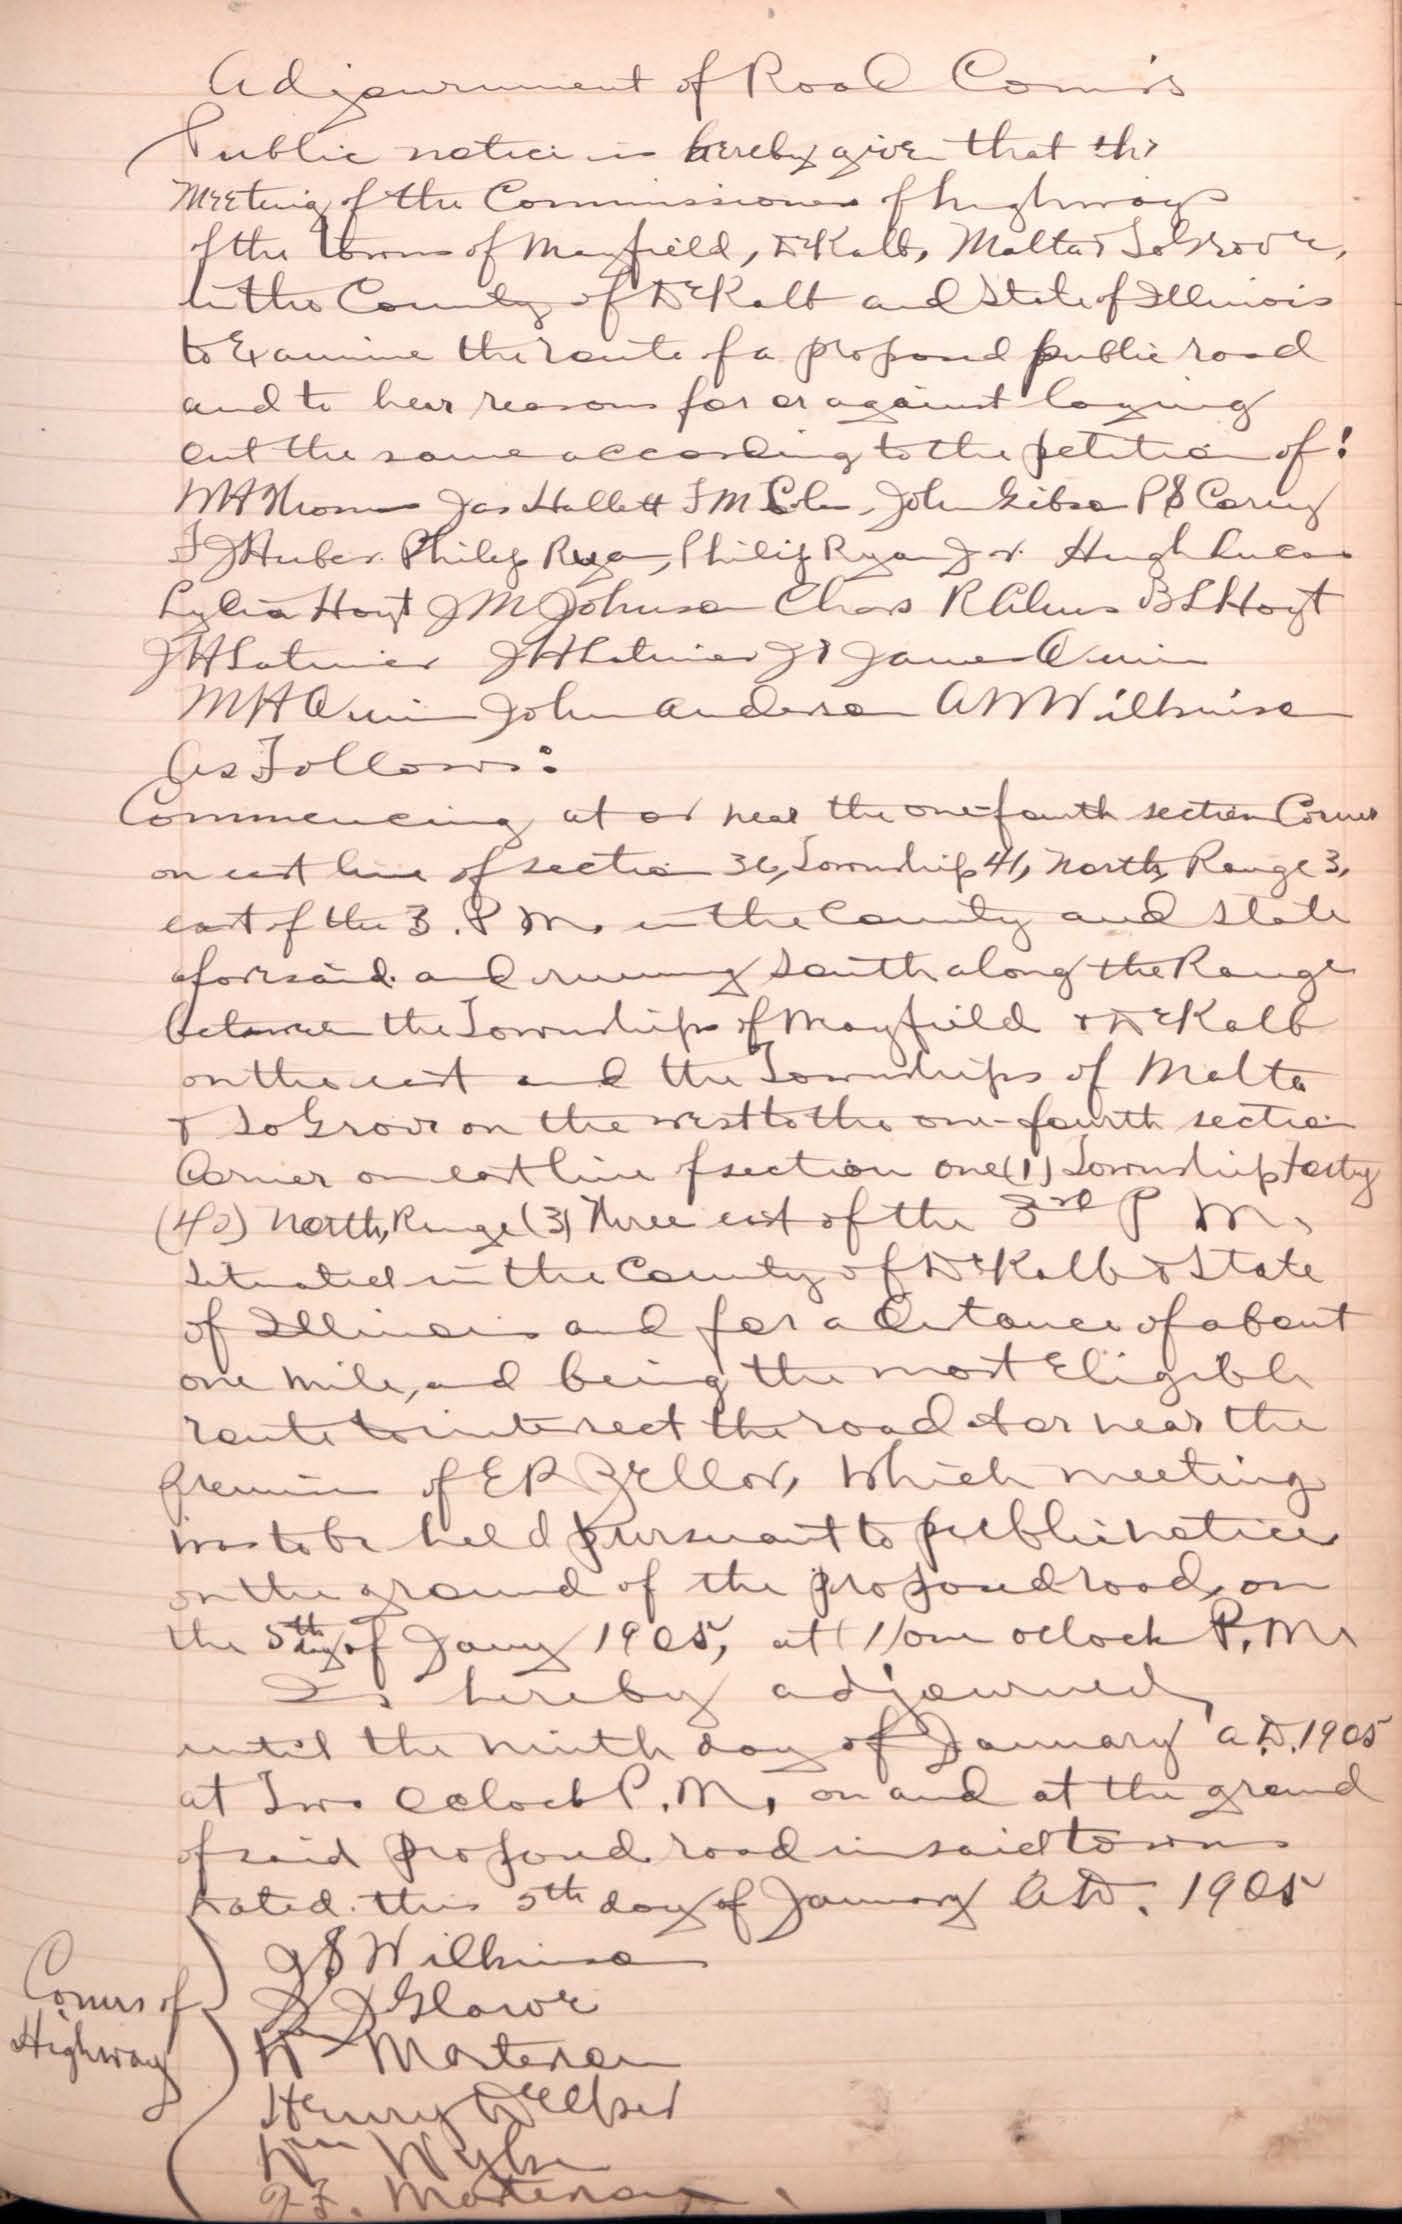 Adjournment of Road Com'rs
Public notice is hereby given that the
Meeting of the Commissioners of highways
of the towns of Mayfield, DeKalb, Malta & So Grove,
in the County of DeKalb and State of Illinois
to Examine the route of a proposed public road
and to hear reasons for or against laying
out the same according to the petition of:
Jas Hallett F M Cole, John Gibson P S Carey
F J Huber Philip Ryan, Philip Ryan Jr. Hugh Lucas
Lydia Hoyt J M Johnson Chas B L Hoyt
J H Latimer J H Latimer Jr James Quinn
M H Quinn John Anderson A W Wilkinson
As Follows:
Commencing at or near the one-fourth section Corner
on east line of section 36, Township 41, North, Range 3,
east of the 3. P. M. in the County and State
aforesaid and running South along the Range
between the Townships of Mayfield & DeKalb
on the east and the Townships of Malta
& So Grove on the west to the one-fourth section
Corner on east line of section one (1) Township forty
(40) North, Range (3) Three east of the 3rd P M.
Situated in the County of DeKalb & State
of Illinois and for a distance of about
one mile, and being the most Eligible
route to intersect the road at or near the
premises of E P Zellor, which meeting
was to be held pursuant to public notice
on the ground of the proposed road, on
the 5th day of Jany 1905, at (1) one oclock P. M.
Is hereby adjourned,
until the ninth day of January A. D. 1905
at Two oclock P. M, on and at the ground
of said proposed road in said towns
Dated this 5th day of January A D. 1905
Comrs of
Highway
J S Wilkinson
J Glawe
Wm Mortenson
Henry
Wm Wylie
J. F. Mortenson.